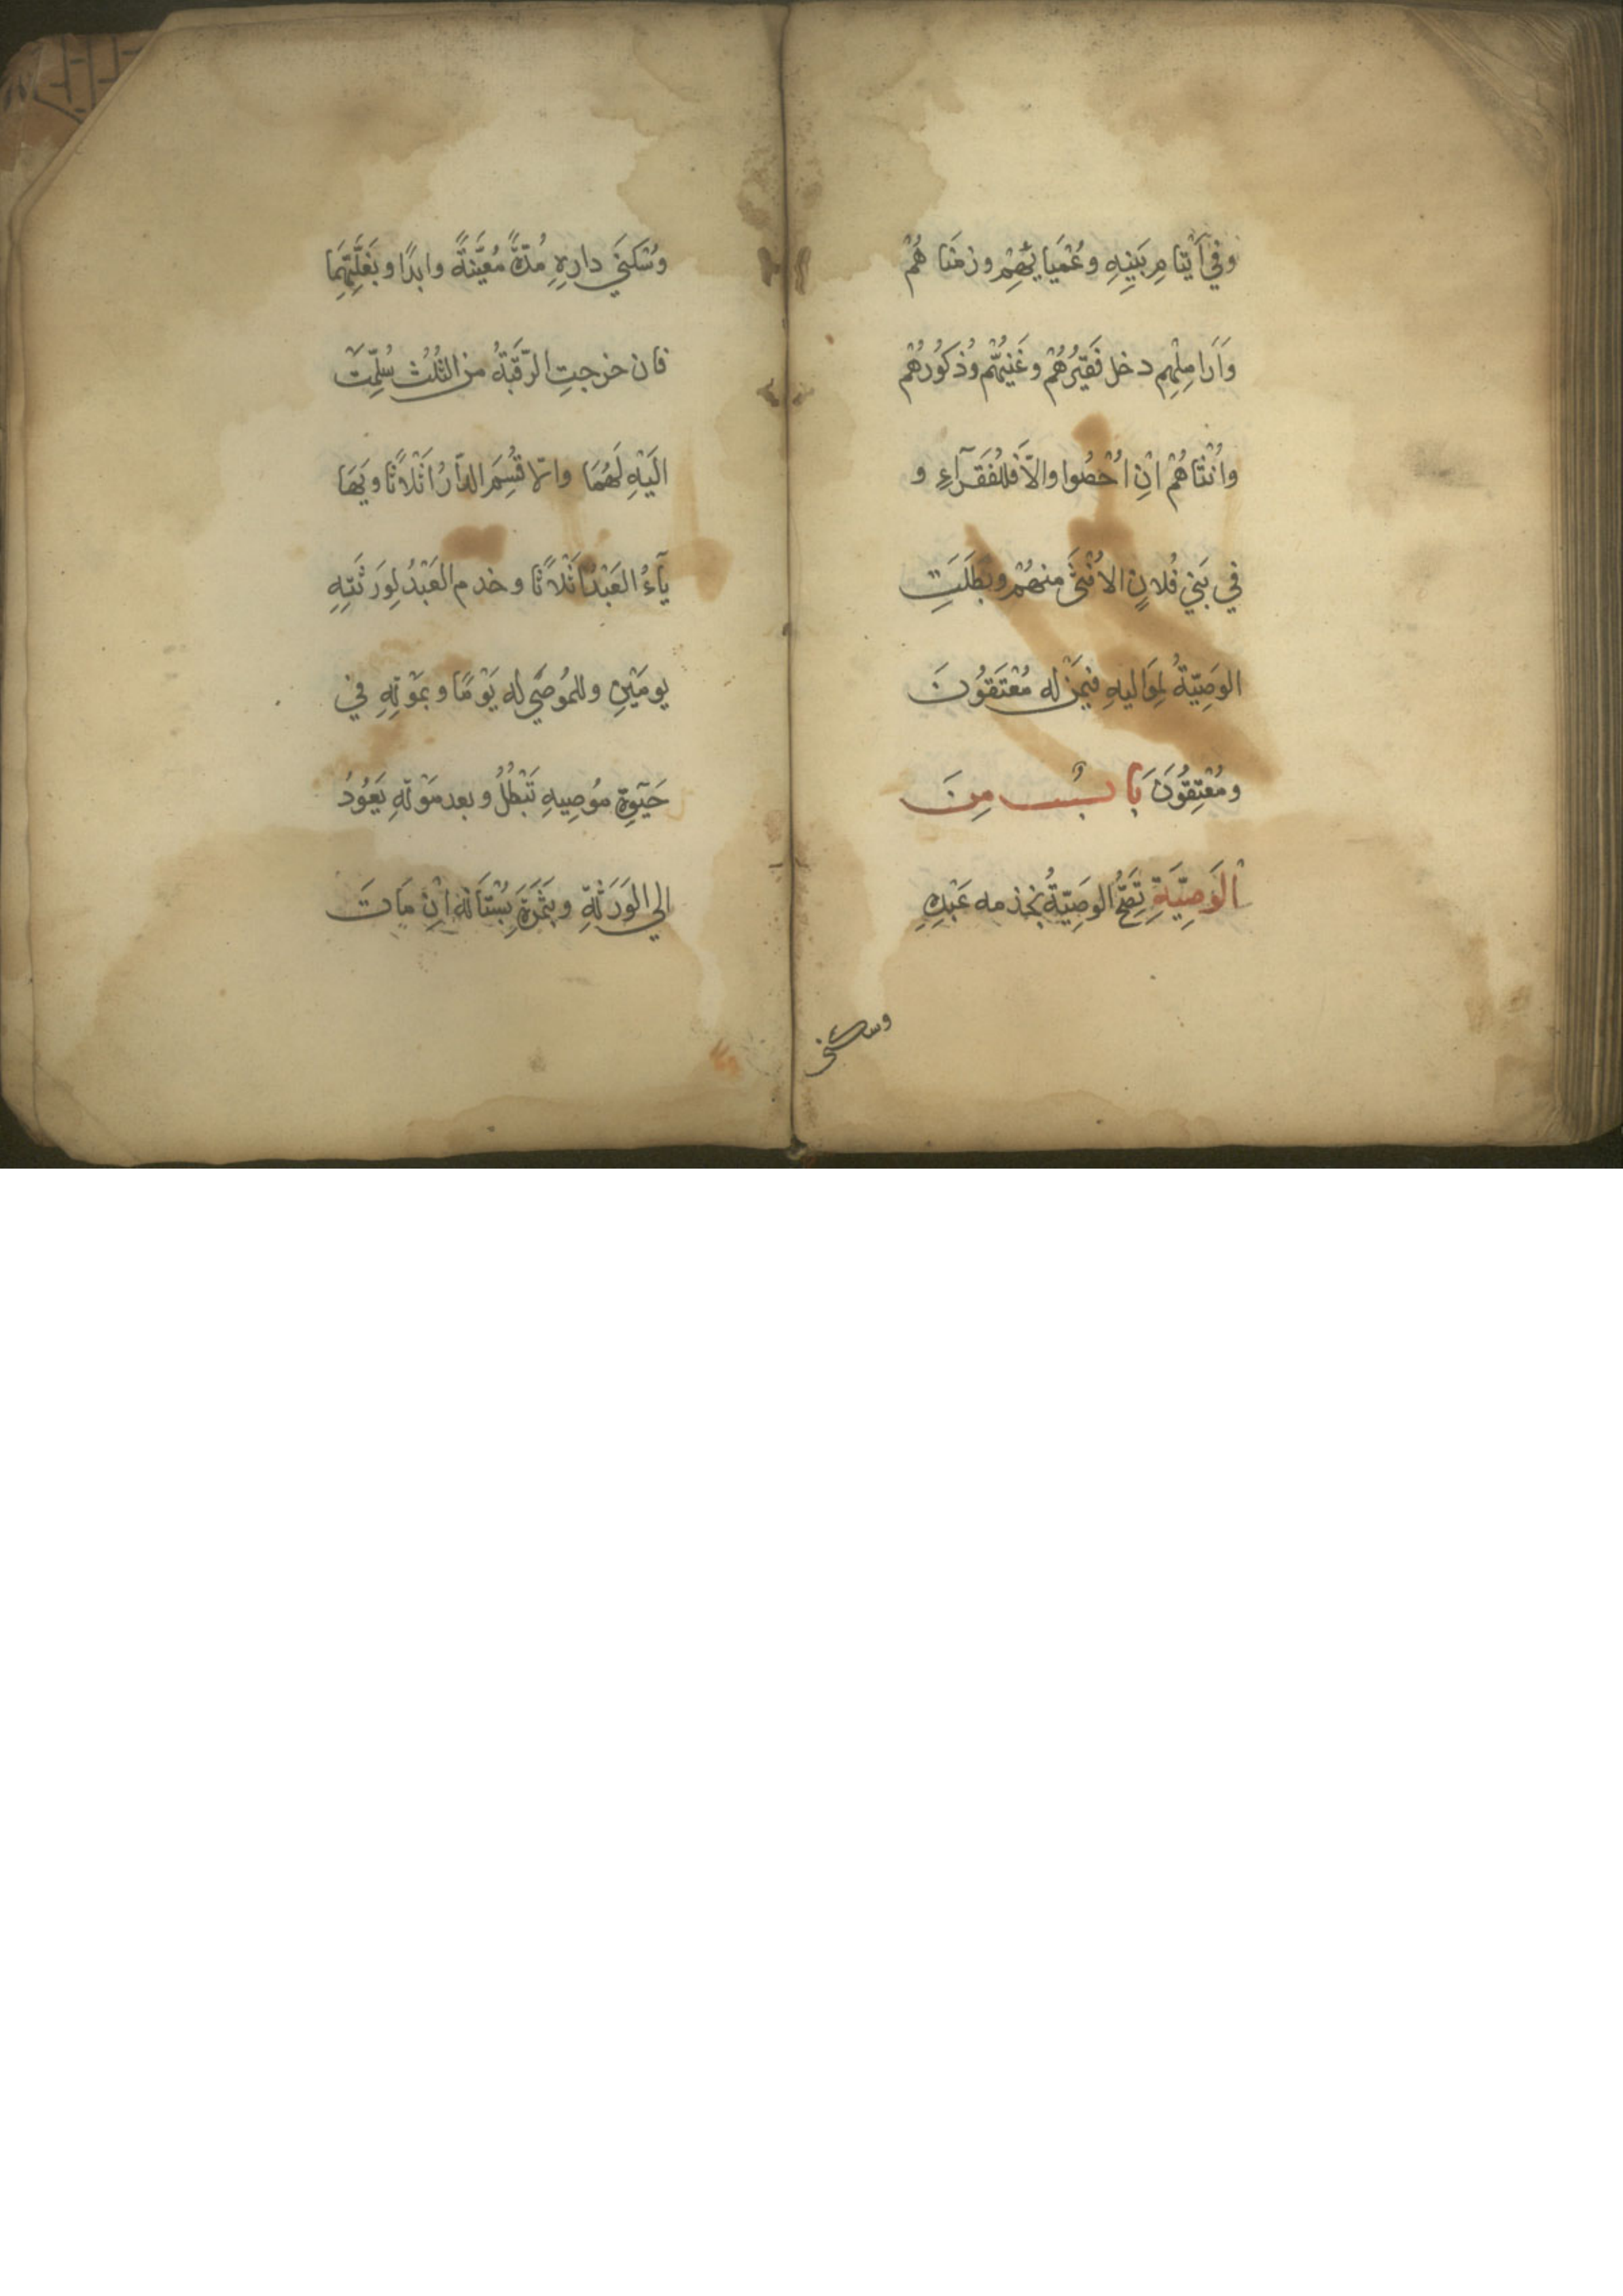 وفِي اَيْتَامِ بَنِيهِ وعُمْيَانِهِمْ وزمْنَاهُمْ
وَاَرَامِلِهِم دخل فَقِيْرُهُمْ وغَنِيُّهُم وذُكُورُهُمْ
واُنْثَاهُمْ اِنْ اُحْصُوا والاّ فللفُقَرَآءِ و
فِي بَنِي فُلانٍ الاُنْثَى منهُمْ وبَطَلَتِ
الوَصِيّةُ لِمَوَاليهِ فِيمَنْ له مُعْتَقُونَ
ومُعْتِقُونَ بَابٌ مِنَ
الْوَصِيَّةِ تَصِحُّ الوَصِيّةُ بخدمه عَبْدِهِ
وسكنى
وسُكْنَى دارِهِ مُدّةً مُعَيَّنَةً وابدًا وبغَلَّتِهِمَا
فان خرجتِ الرّقَبَةُ من الثُلُثِ سُلِّمَتْ
اِلَيْهِ لَهُمَا والاّ قُسِمَ الدّارُ اَثْلَاثًا ويَهَا
يآءُ العَبْدُ اَثْلَاثًا وخدم العَبْدُ لِوَرَثَتِهِ
يومَيْنِ وللمُوصَى له يَوْمًا وبمَوْتِهِ فِي
حَيٰوةِ مُوصِيهِ تَبْطُلُ وبعد مَوْتِهِ يَعُودُ
الي الوَرَثَةِ وبثَمَرَةِ بُسْتَانِهِ اِنْ مَاتَ